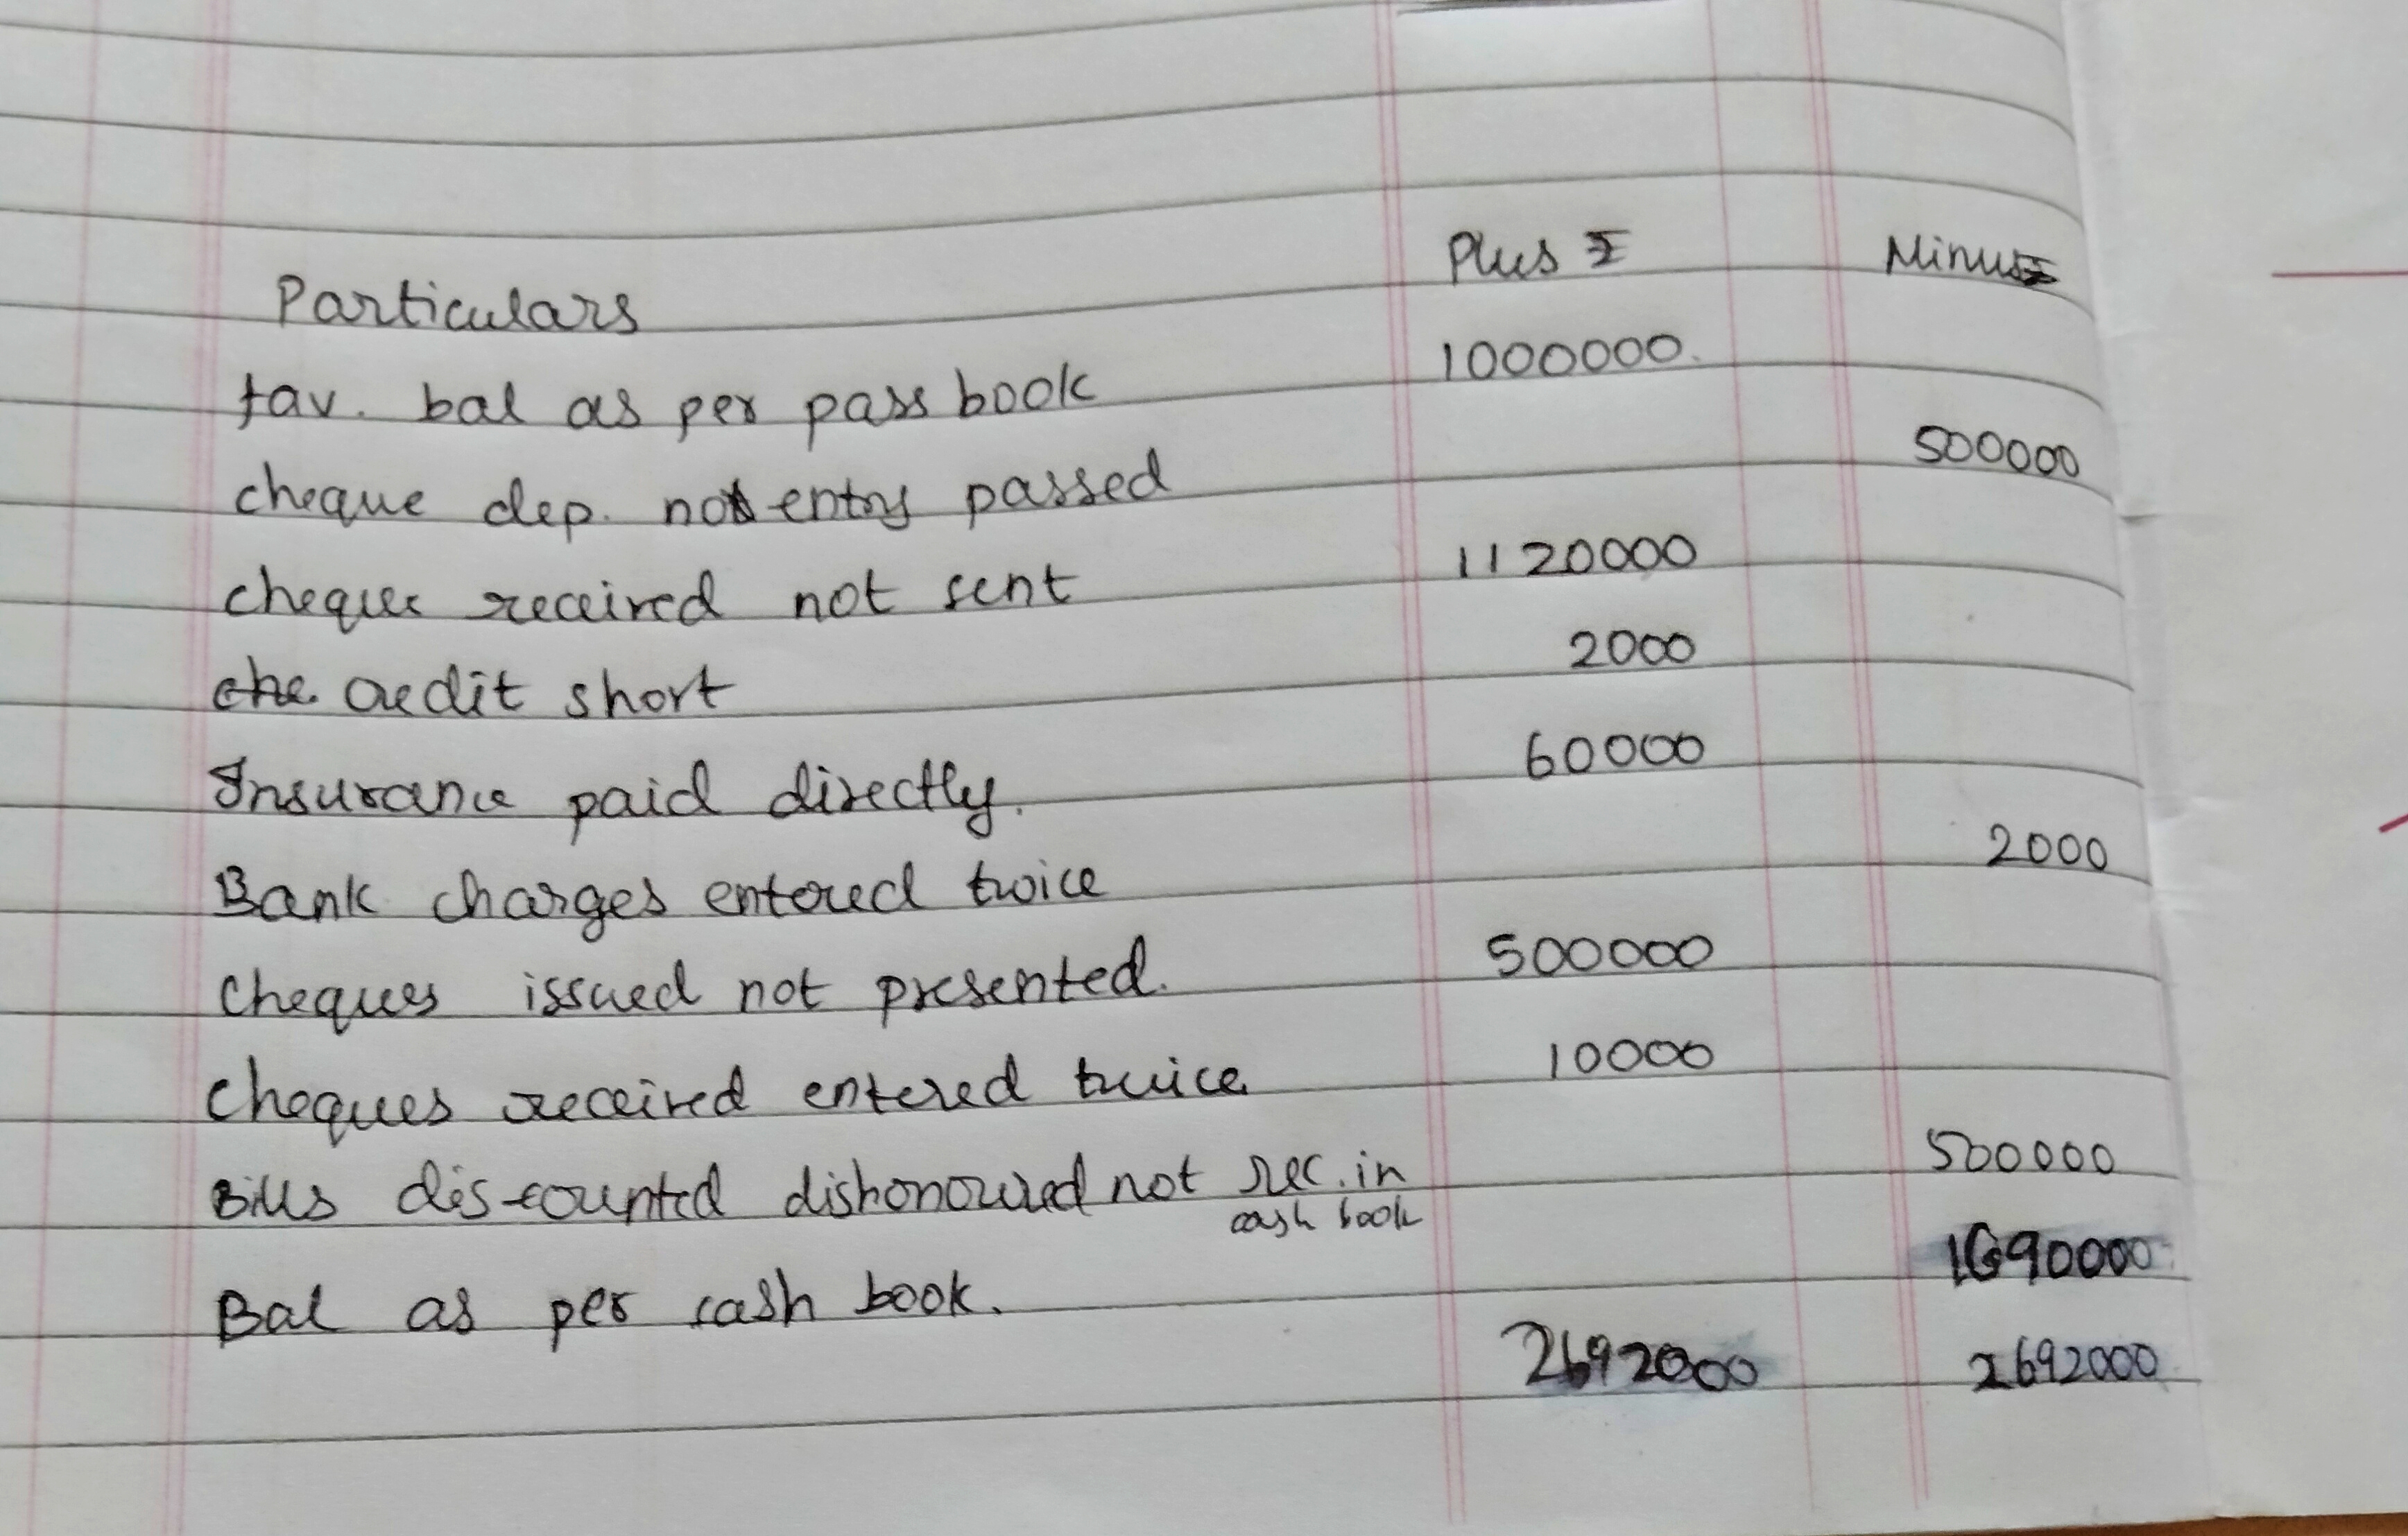 Particulars Plus ₹ Minus ₹
fav. bal as per pass book 1000000.
cheque dep. not entry passed 500000
cheques received not sent 1120000
che credit short 2000
Insurance paid directly. 60000
Bank charges entered twice 2000
cheques issued not presented. 500000
cheques received entered twice 10000
Bills discounted dishonoured not rec. in 500000
cash book
Bal as per cash book. 1690000
2692000 2692000